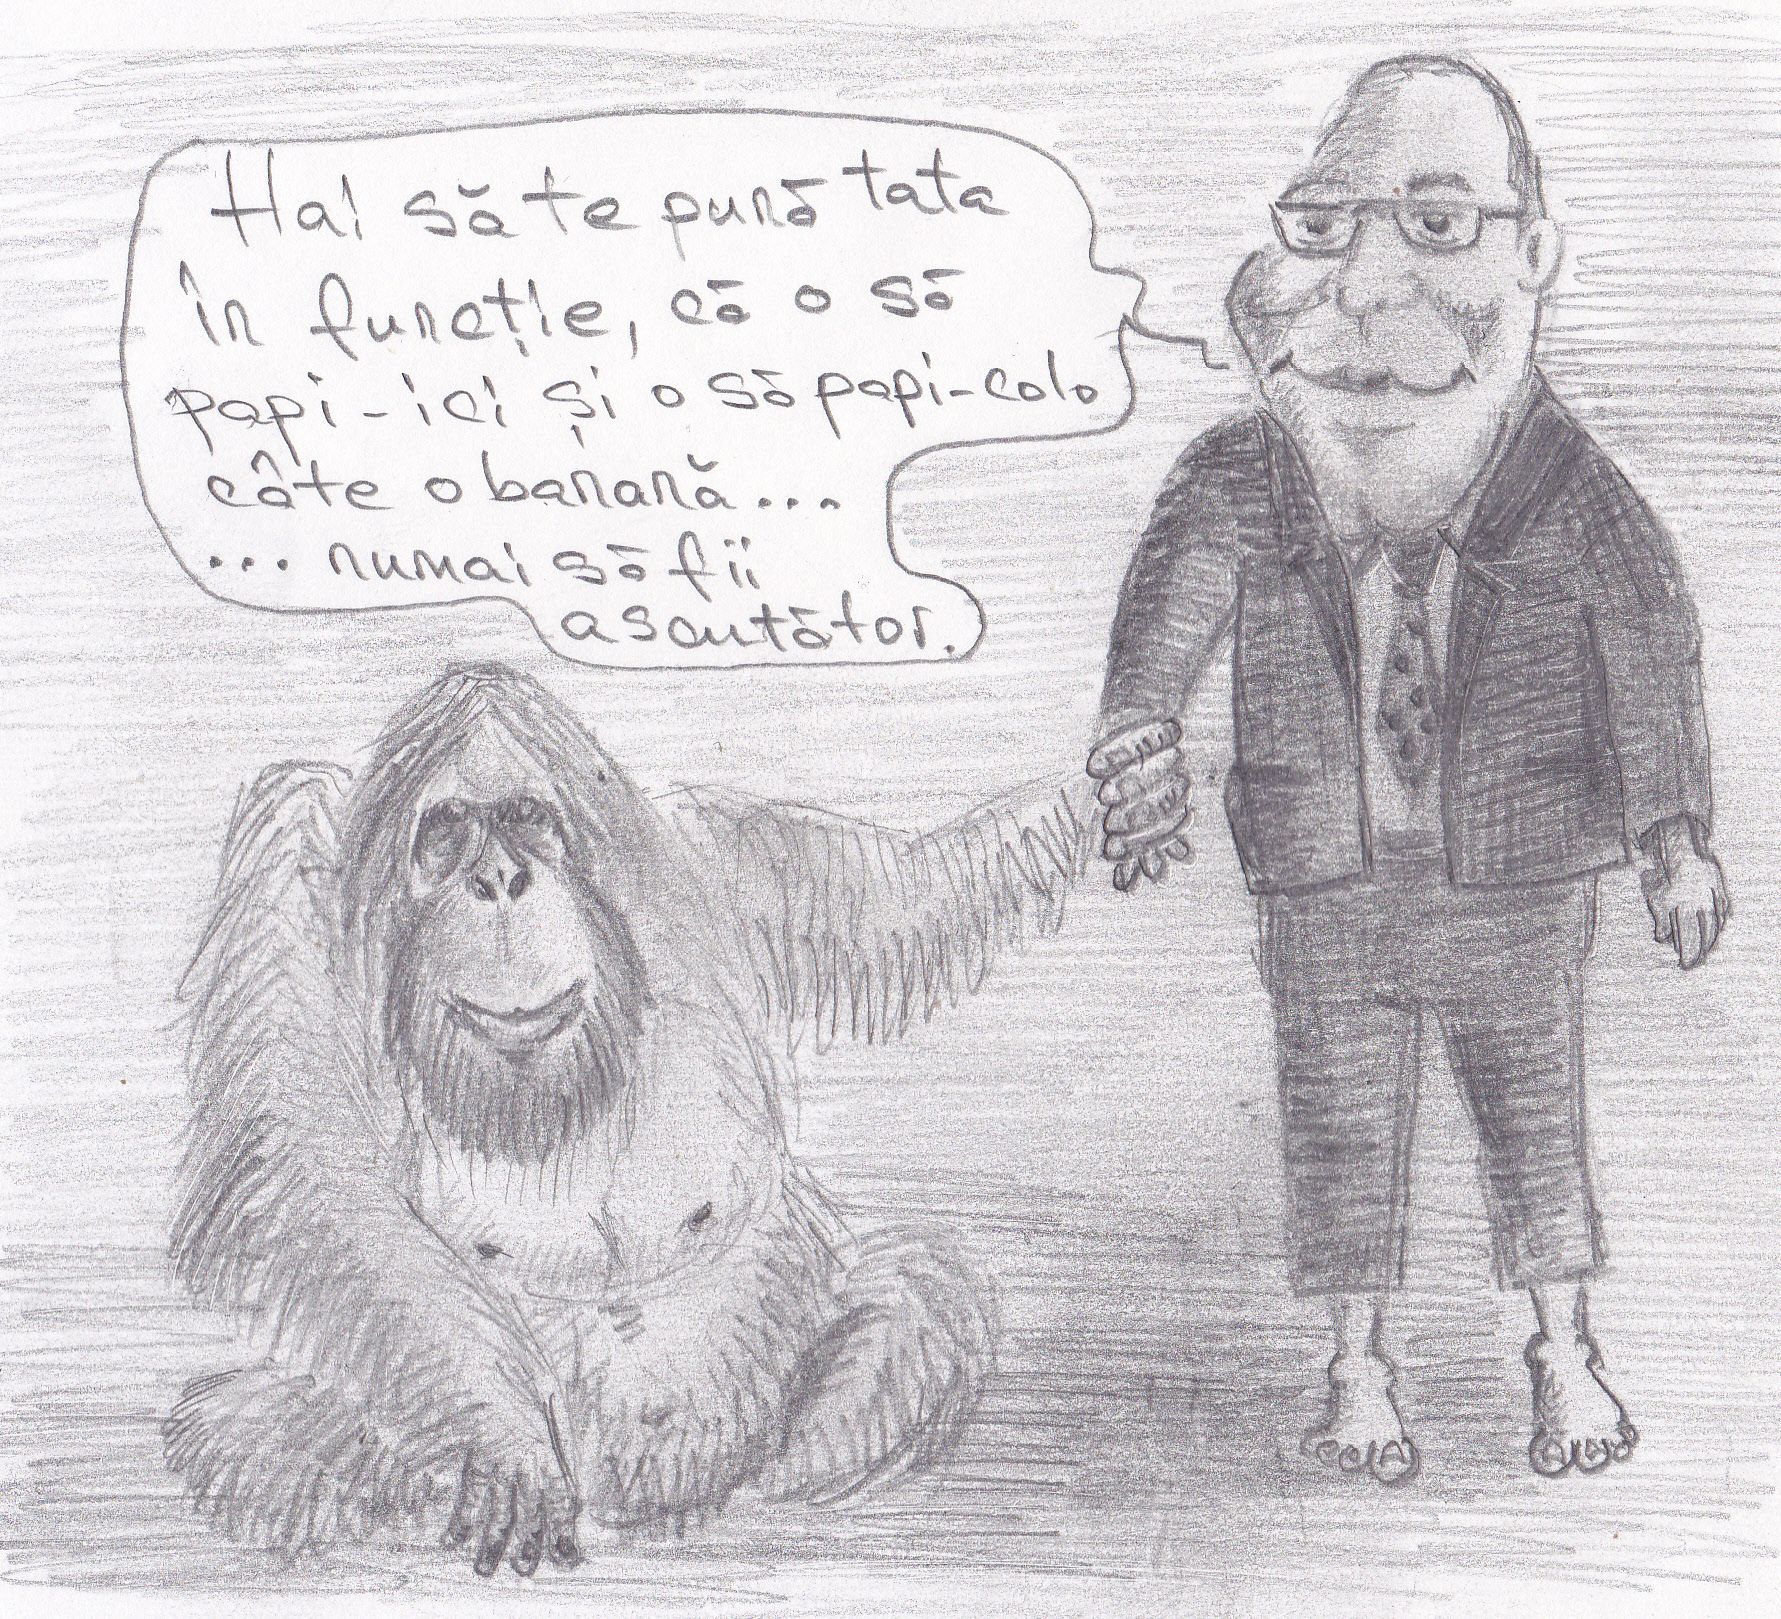 Hai să te pună tata
în funcție, că o să
papi-ici și o să papi-colo
câte o banană...
...numai să fii
ascutător.